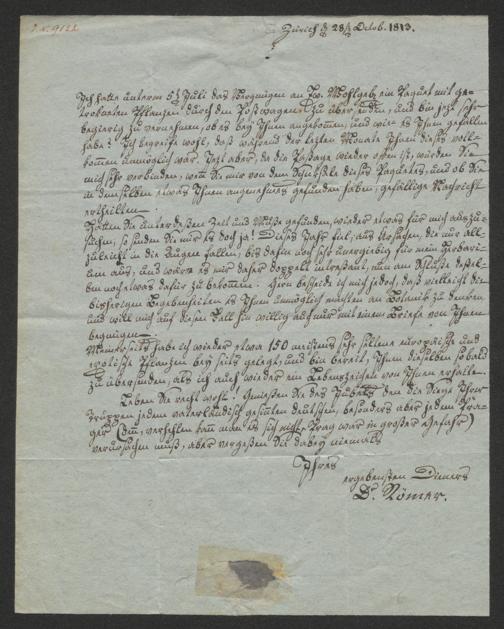 Zürich d. 28st Octob. 1813.
Ich hatte unterm 5t Juli das Vergnügen an Ew. Wohlgeb. ein Paquet mit ge-
trockneten Pflanzen durch den Postwagen zu übersenden, und bin jetzt sehr
begierig zu vernehmen, ob es bey Ihnen angekommen, und wie es Ihnen gefallen
habe? Ich begreife wohl, daß während der letzten Monate Ihnen dieses voll-
kommen unmöglich war. Jezt aber, da die Passage wieder offen ist, würden Sie
mich sehr verbinden, wenn Sie mir von dem Schicksale dieses Paquetes, und ob Sie
in demselben etwas Ihnen angenehmes gefunden haben, gefällige Nachricht
ertheilten.
Hätten Sie unterdeßen Zeit und Muße gefunden, wieder etwas für mich auszu-
suchen, so senden Sie mir es doch ja! Dieses Jahr fiel, aus Ursachen, die nur all-
zuleicht in die Augen fallen, bis dahin noch sehr unergiebig für mein Herbari-
um aus, und wäre es mir daher doppelt intreßant, nun am Schluße deßel-
ben noch etwas dafür zu bekommen. Gern bescheide ich mich jedoch, daß vielleicht die
bisherigen Begebenheiten es Ihnen unmöglich machten an Botanik zu denken
und will mich auf diesen Fall hin willig auch nur mit einem Briefe von Ihnen
begnügen.
Meinerseits habe ich wieder etwa 150 meistens sehr seltene europäische und
exotische Pflanzen bey seits gelegt, und bin bereit, Ihnen dieselben sobald
zu übersenden, als ich auch wieder ein Lebenszeichen von Ihnen erhalte.
Leben Sie recht wohl! Genießen Sie des Jubels den die Siege Ihrer
Truppen jedem vaterländisch gesinnten deutschen, besonders aber jedem Pra-
ger (denn, verhehlen kann man es sich nicht, Prag war in großer Gefahr)
verursachen muß, aber vergeßen Sie dabey niemals
Ihres
ergebensten Dieners
Dr. Römer.